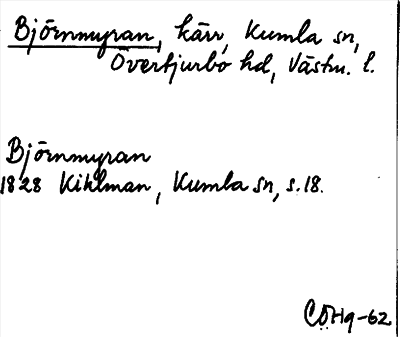 Björnmyran, kärr, Kumla sn,
Övertjurbo hd, Västm. l.
Björnmyran
1828 Kihlman, Kumla sn, s. 18.
CÖHg-62